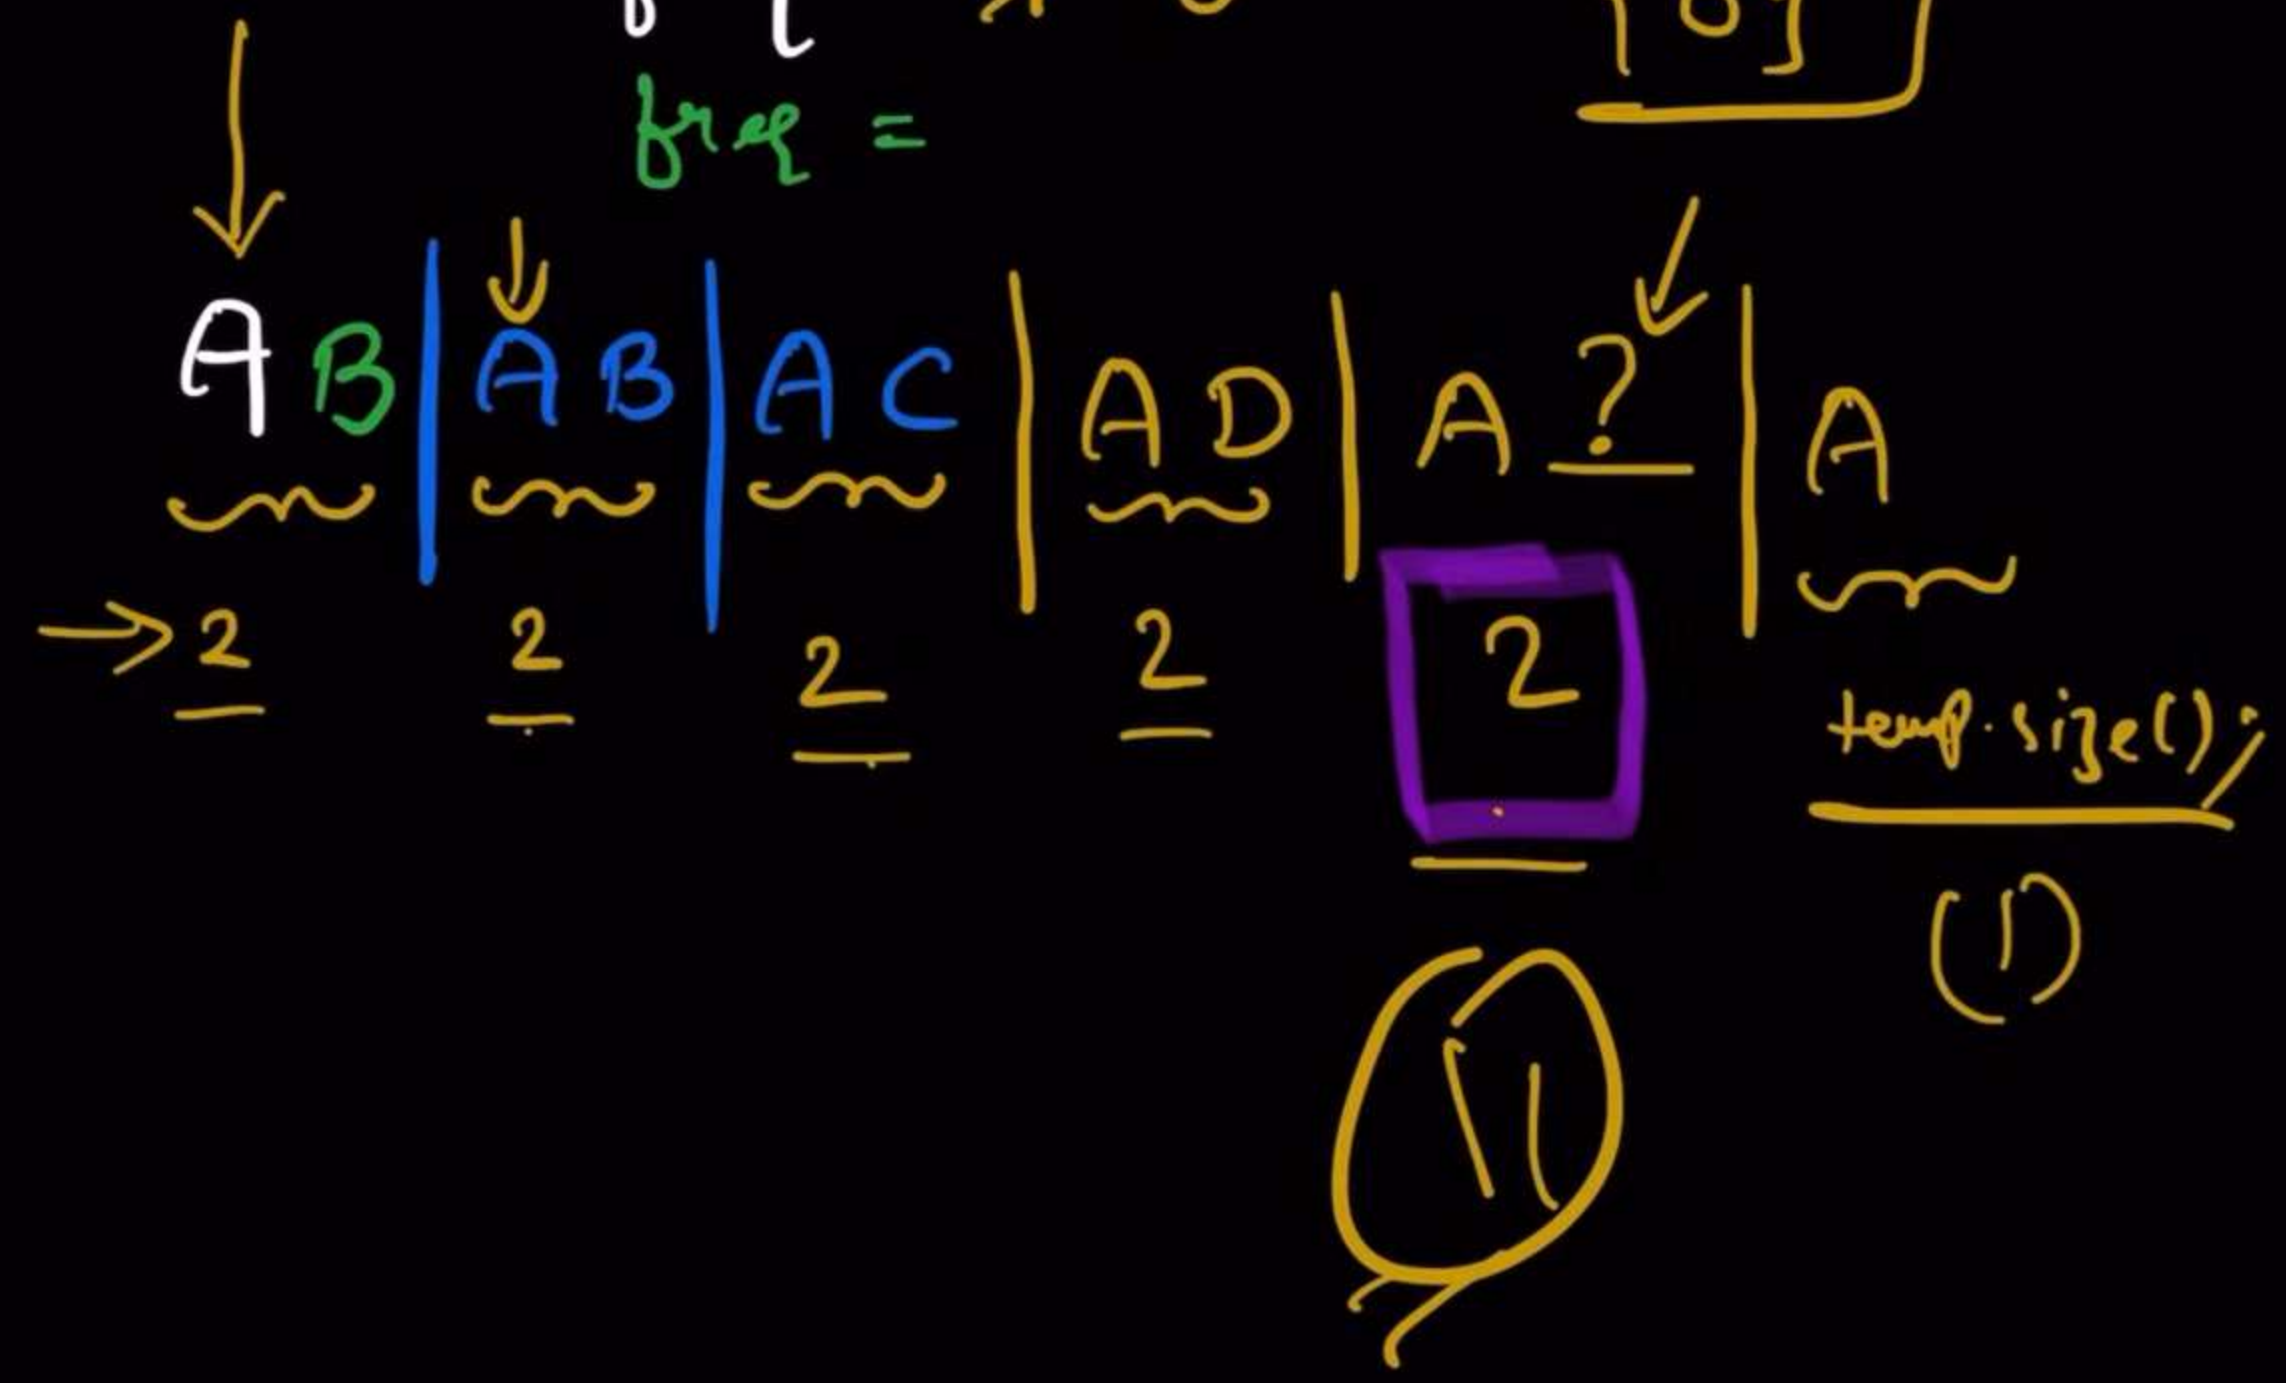 freq =
A B | A B | A C | A D | A ? | A
→ 2 2 2 2 2
temp.size();
(1)
11